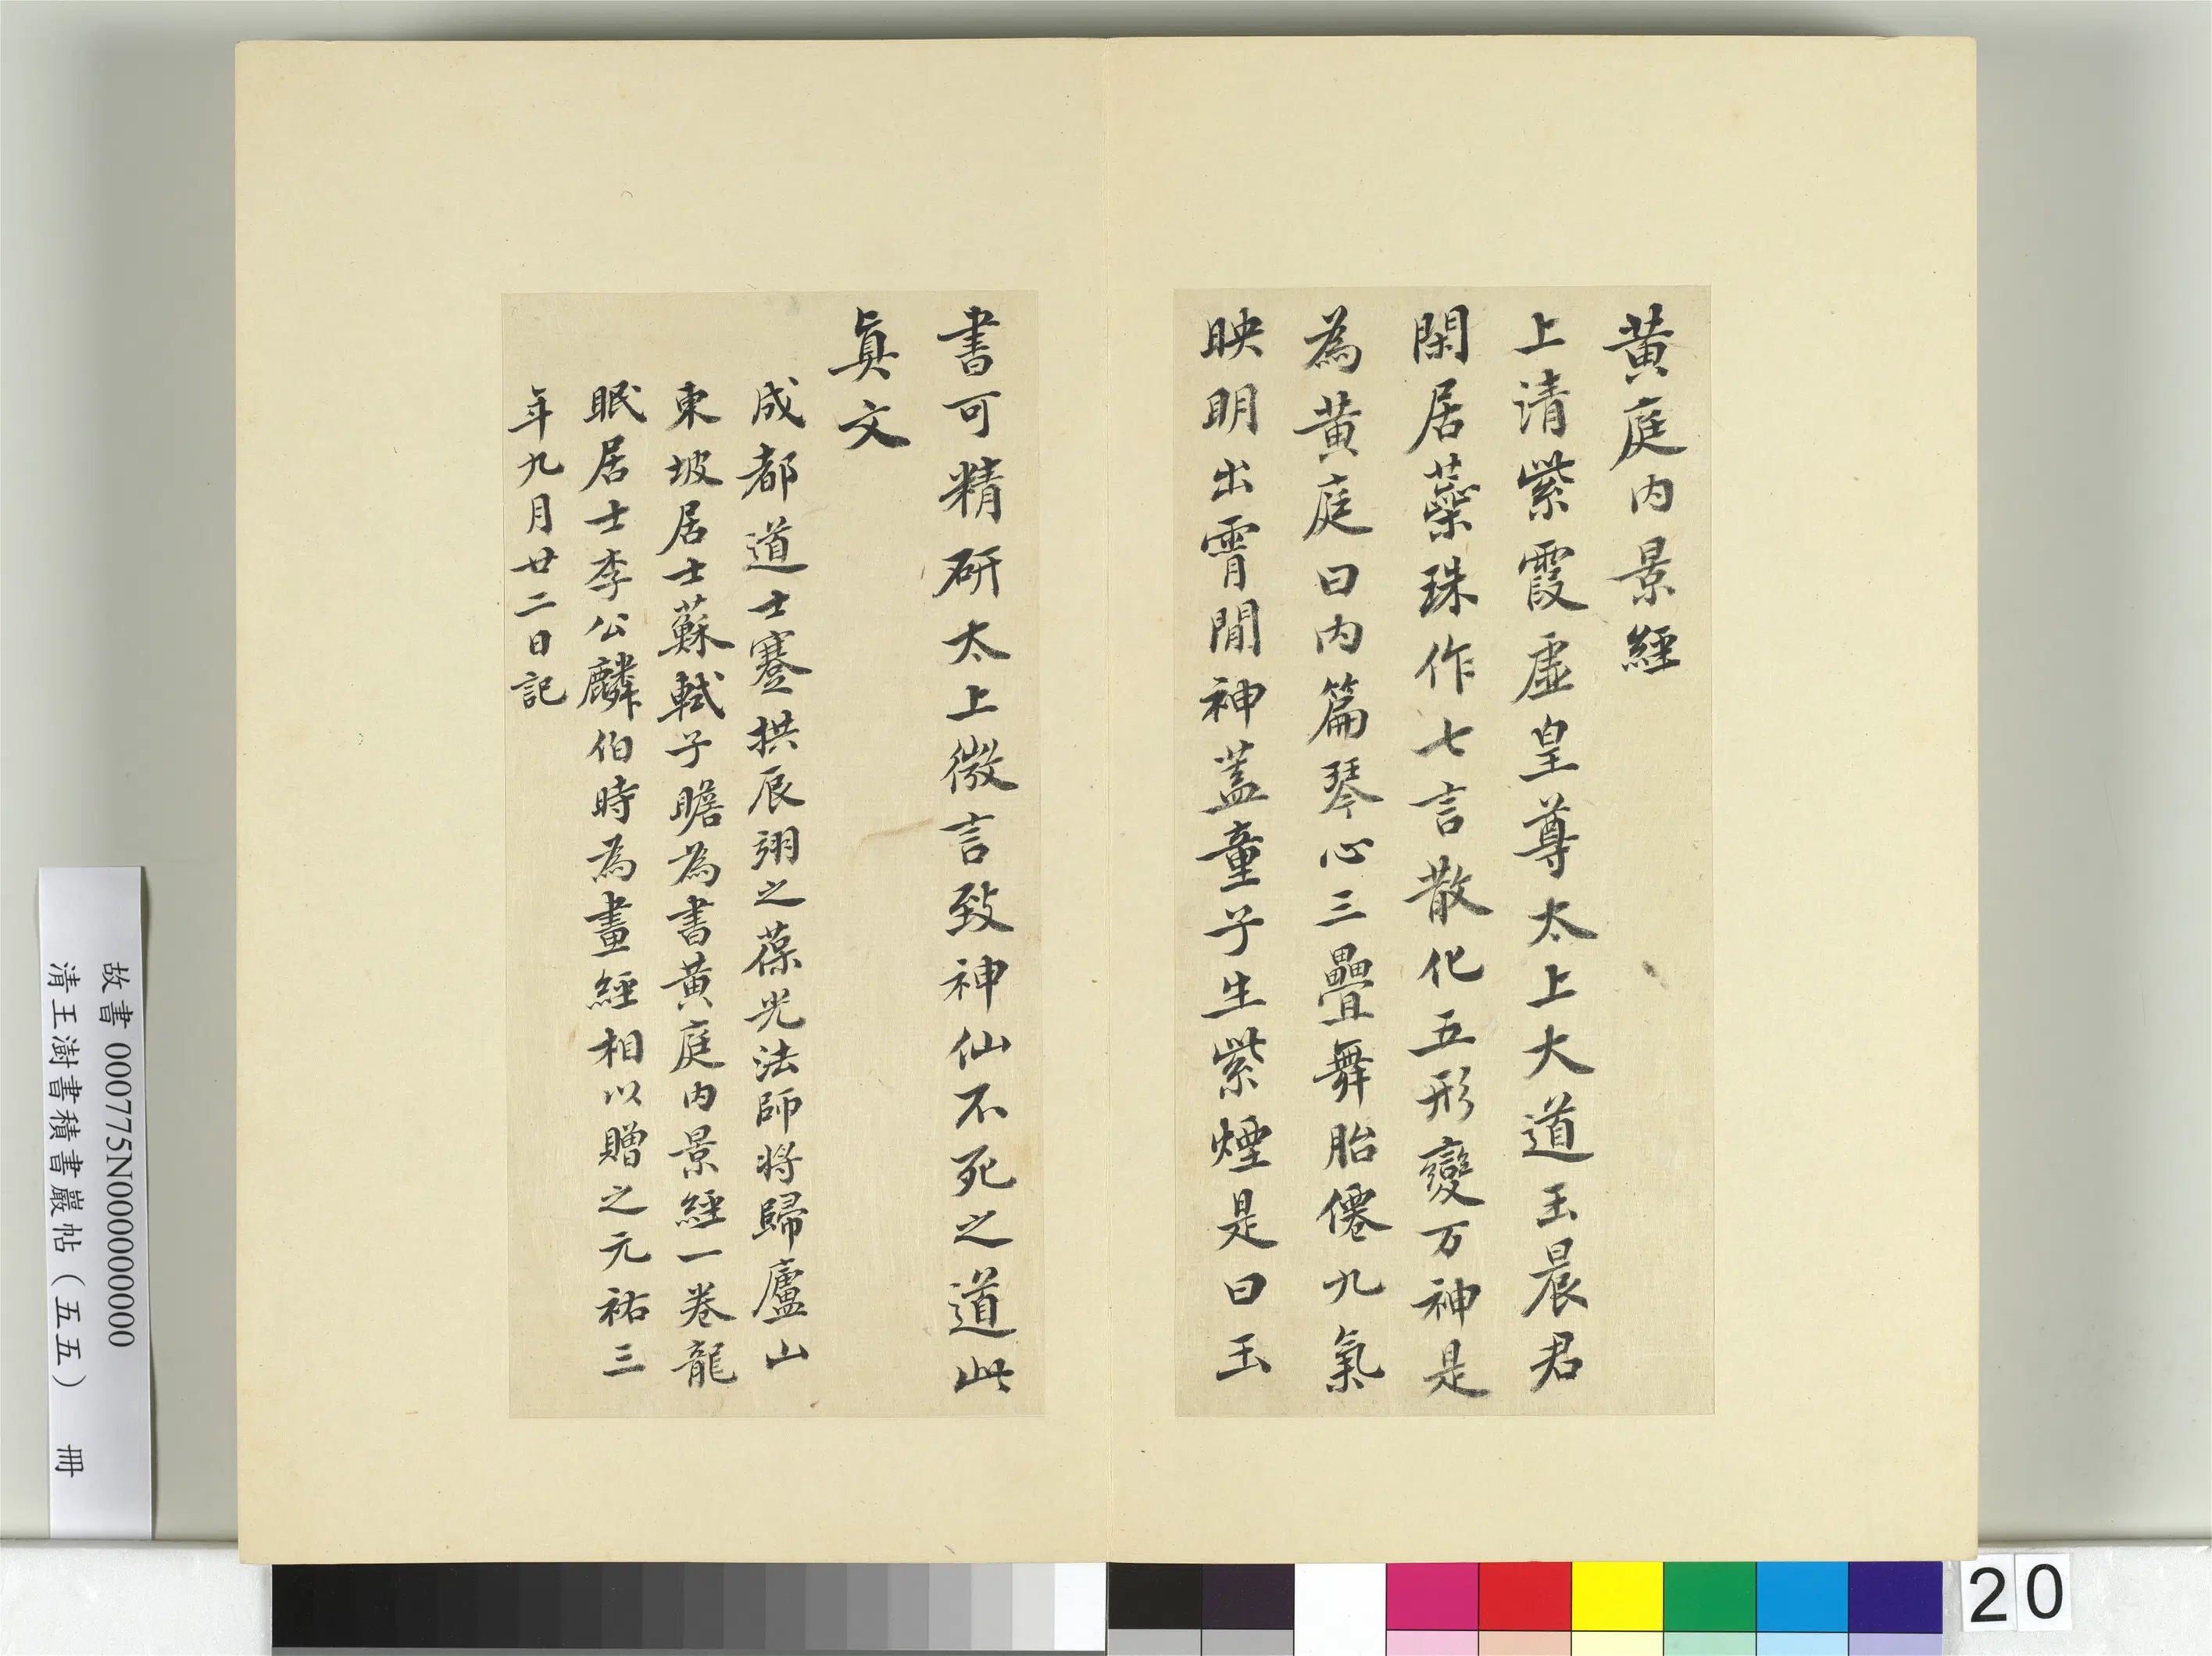 黄庭内景經
上清紫霞虛皇尊太上大道玉晨君
閑居蘂珠作七言散化五形變万神是
為黄庭曰内篇琴心三疊舞胎僊九氣
映明出霄間神蓋童子生紫煙是曰玉
書可精研太上微言致神仙不死之道此
真文
成都道士蹇拱辰翊之葆光法師將歸廬山
東坡居士蘇軾子瞻為書黄庭内景經一卷龍
眠居士李公麟伯時為畫經相以贈之元祐三
年九月廿二日記
故書 000775N000000000
清王澍書積書巖帖（五五） 冊
20